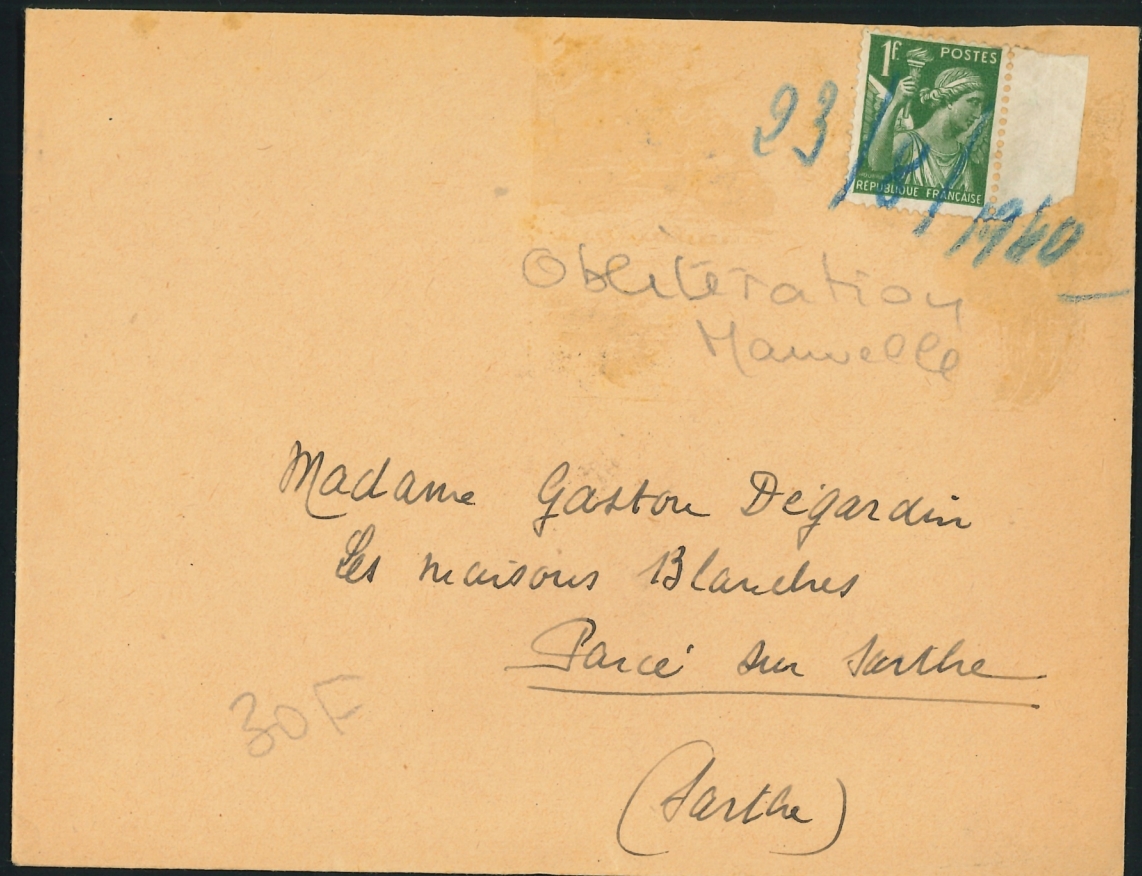 1F. POSTES
RÉPUBLIQUE FRANÇAISE
23/8/1940
Oblitération
Manuelle
Madame Gaston Dégardin
Les maisons Blanches
Parcé sur Sarthe
30F
(Sarthe)